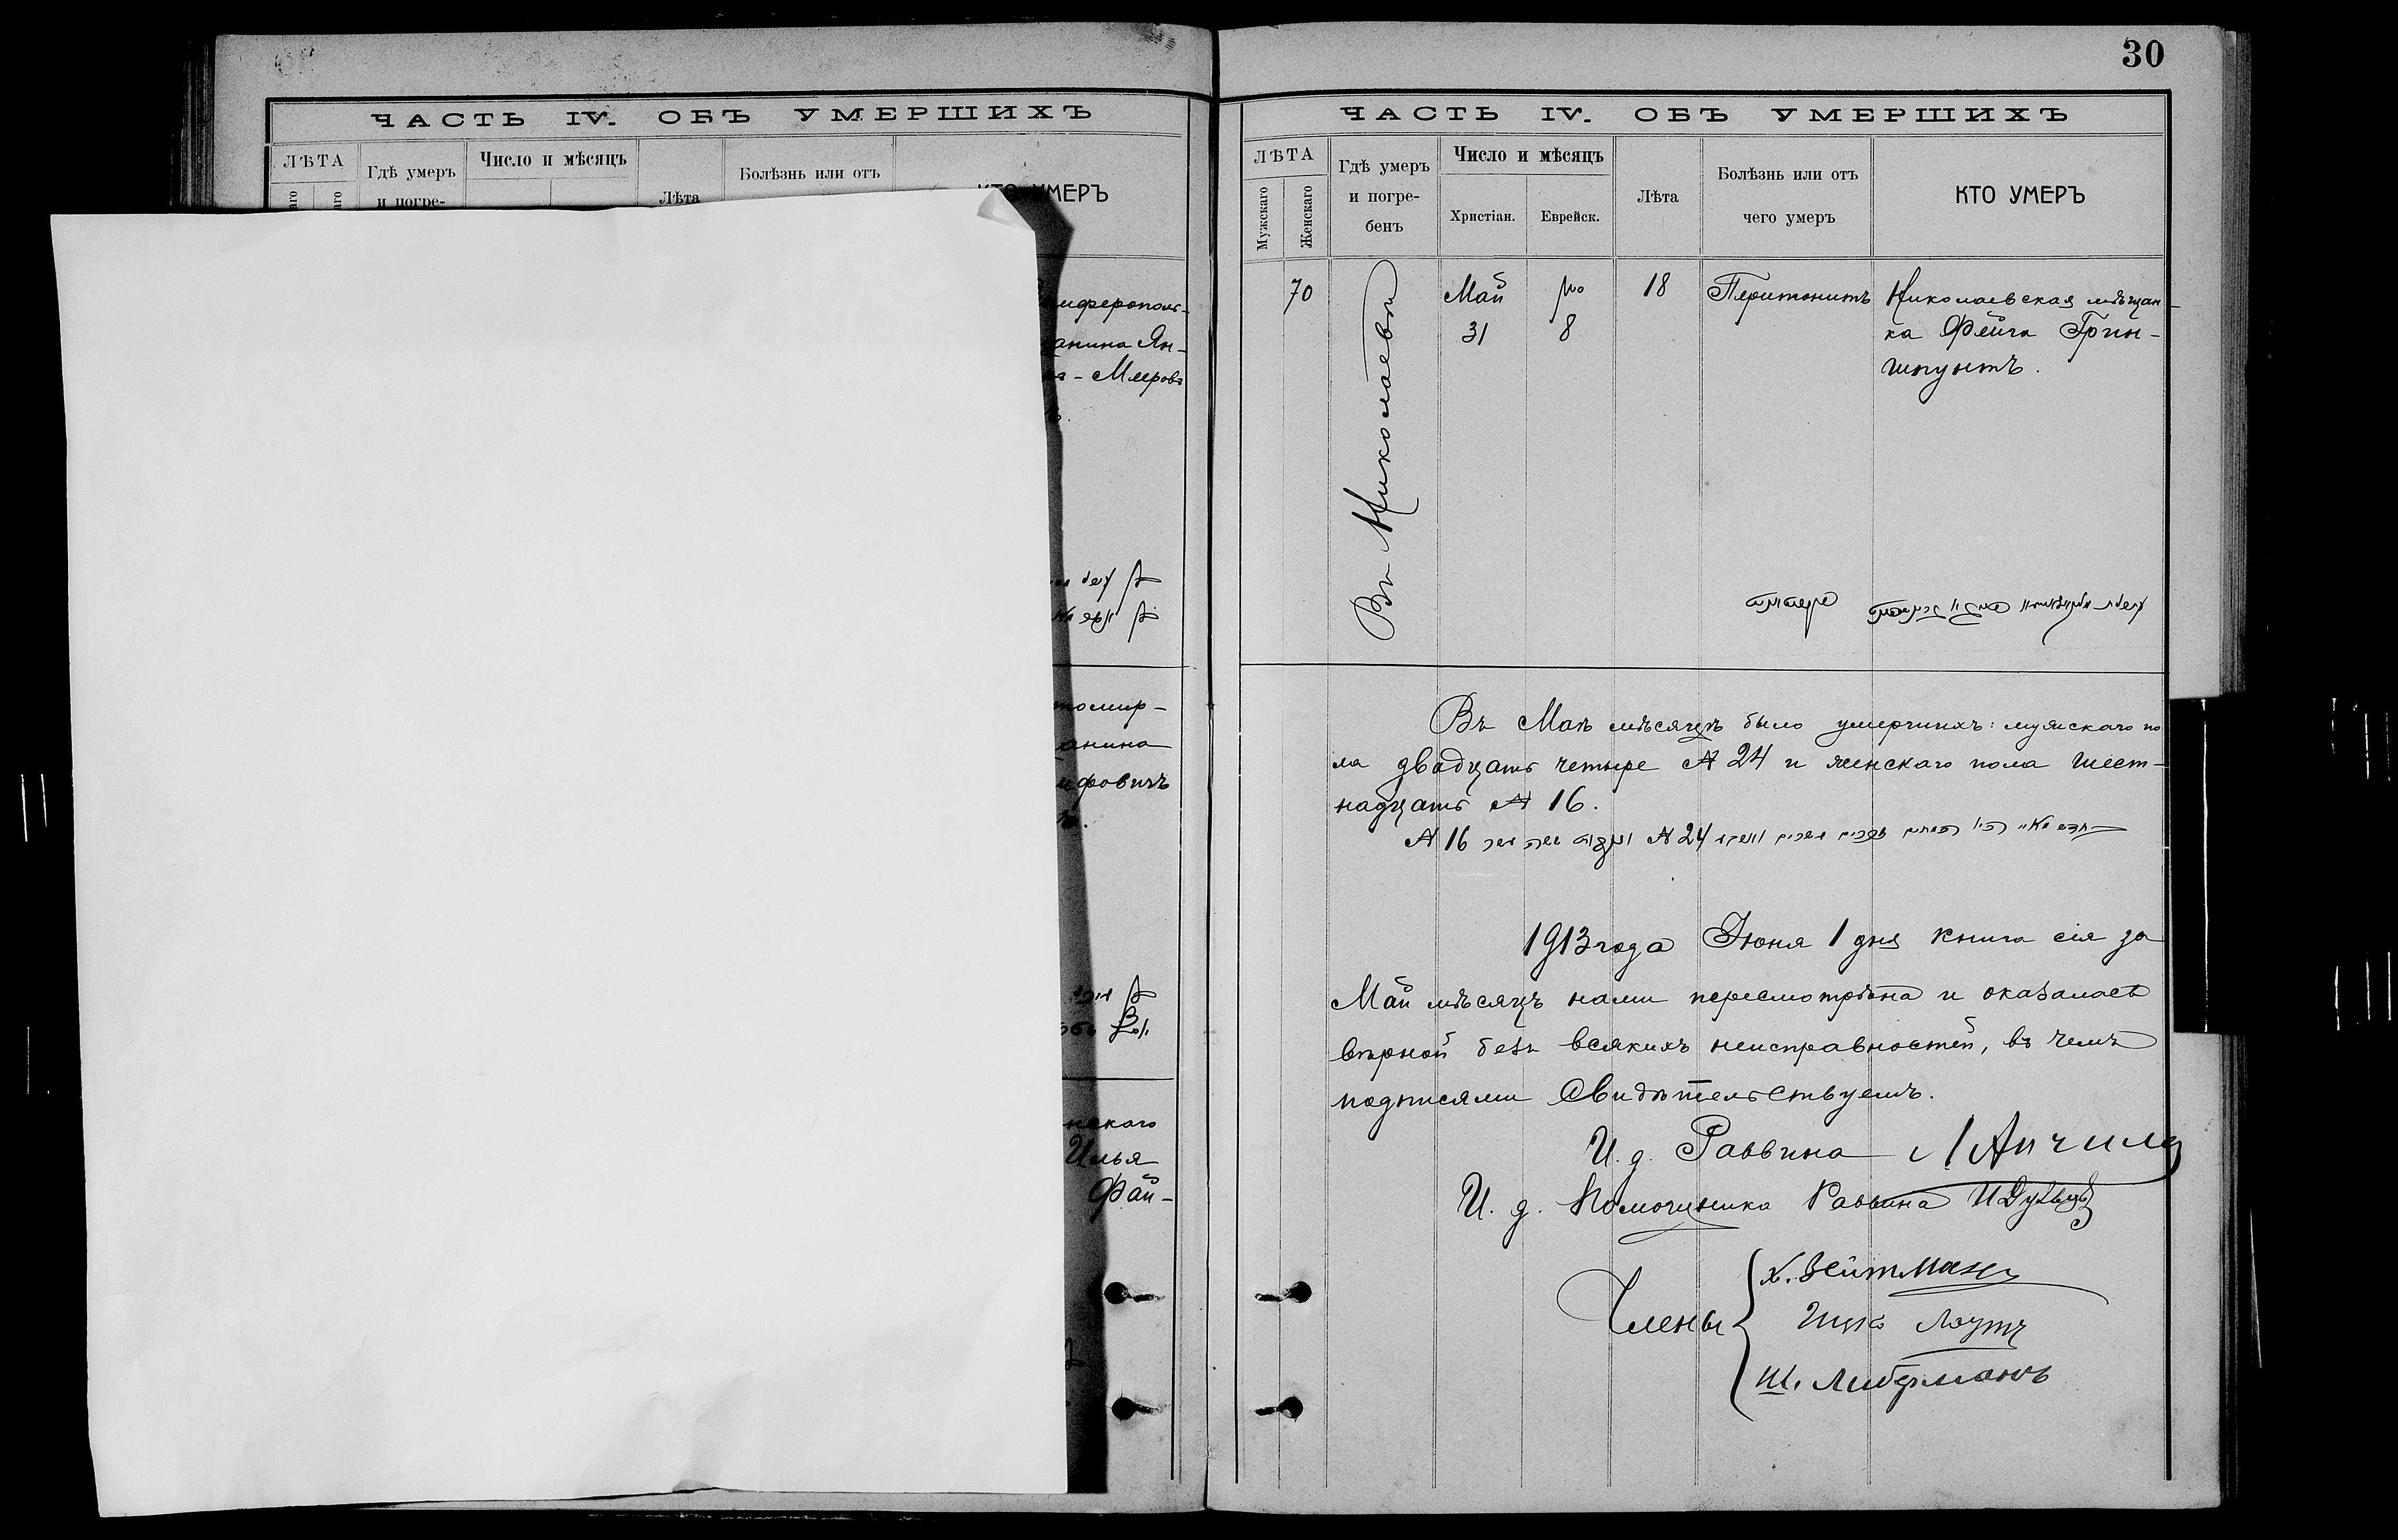 ЧАСТЬ IV. ОБЪ УМЕРШИХЪ
ЛѢТА
Гдѣ умеръ
и погре-
Число и мѣсяцъ
Лѣта
Болѣзнь или отъ
КТО УМЕРЪ
анина Ян-
Меровъ
анина
нскаго
Илья
Фай-
30
ЧАСТЬ IV. ОБЪ УМЕРШИХЪ
ЛѢТА
Мужскаго
Женскаго
Гдѣ умеръ
и погре-
бенъ
Число и мѣсяцъ
Христіан.
Еврейск.
Лѣта
Болѣзнь или отъ
чего умеръ
КТО УМЕРЪ
70
Въ Николаевѣ
Май
31
8
18
Перитонитъ
Николаевская мѣщан-
ка Фейга Грин-
шпунтъ.
Въ Маѣ мѣсяцѣ было умершихъ: мужскаго по
ла двадцать четыре № 24 и женскаго пола шест-
надцать № 16.
№ 24
№ 16
1913 года Іюня 1 дня книга сія за
Май мѣсяцъ нами пересмотрѣна и оказалась
вѣрной безъ всякихъ неисправностей, въ чемъ
подписями свидѣтельствуемъ.
И. д. Раввина
И. д. Помощника Раввина
Члены
Х. Зейтманъ
Ш. Либерманъ